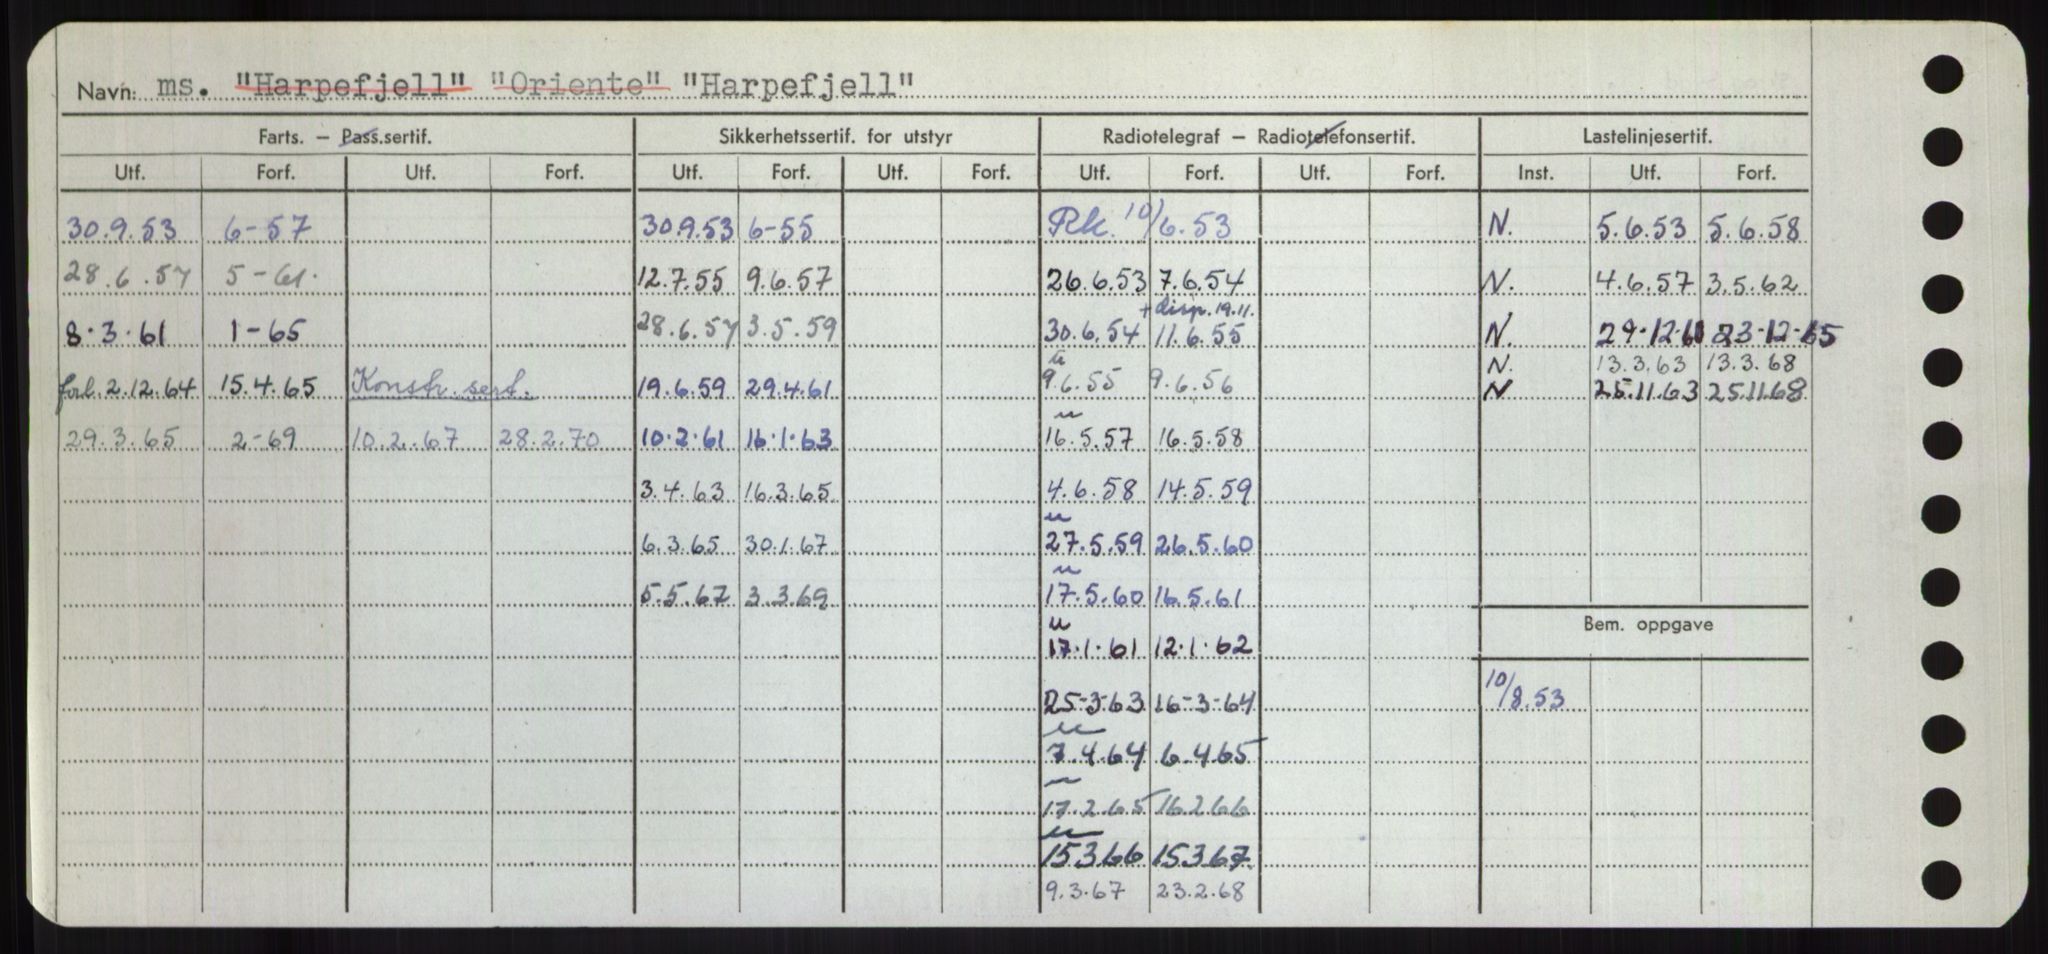 Navn: ms. "Harpefjell" "Oriente" "Harpefjell"
Farts. — Pass.sertif. Sikkerhetssertif. for utstyr Radiotelegraf — Radiotelefonsertif. Lastelinjesertif.
Utf. Forf. Utf. Forf. Utf. Forf. Utf. Forf. Utf. Forf. Utf. Forf. Inst. Utf. Forf.
30.9.53 6-57 30.9.53 6-55 Rk. 10/6.53 N. 5.6.53 5.6.58
28.6.57 5-61. 12.7.55 9.6.57 26.6.53 7.6.54 N. 4.6.57 3.5.62
+ disp. 19.11.
8.3.61 1-65 28.6.57 3.5.59 30.6.54 11.6.55 N. 29-12-61 23-12-65
N. 13.3.63 13.3.68
forl. 2.12.64 15.4.65 Konstr. sert. 19.6.59 29.4.61 9.6.55 9.6.56 N 25.11.63 25.11.68
29.3.65 2-69 10.2.67 28.2.70 10.2.61 16.1.63 16.5.57 16.5.58
3.4.63 16.3.65 4.6.58 14.5.59
6.3.65 30.1.67 27.5.59 26.5.60
5.5.67 3.3.69 17.5.60 16.5.61
Bem. oppgave
17.1.61 12.1.62
25-3-63 16-3-64 10/8.53
7.4.64 6.4.65
17.2.65 16.2.66
15.3.66 15.3.67
9.3.67 23.2.68